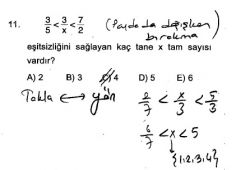 11. 3/5 < 3/x < 7/2 (Paydada değişken bırakma
eşitsizliğini sağlayan kaç tane x tam sayısı
vardır?
A) 2 B) 3 C) 4 D) 5 E) 6
Takla ⟷ yön
2/7 < x/3 < 5/3
6/7 < x < 5
{1,2,3,4}